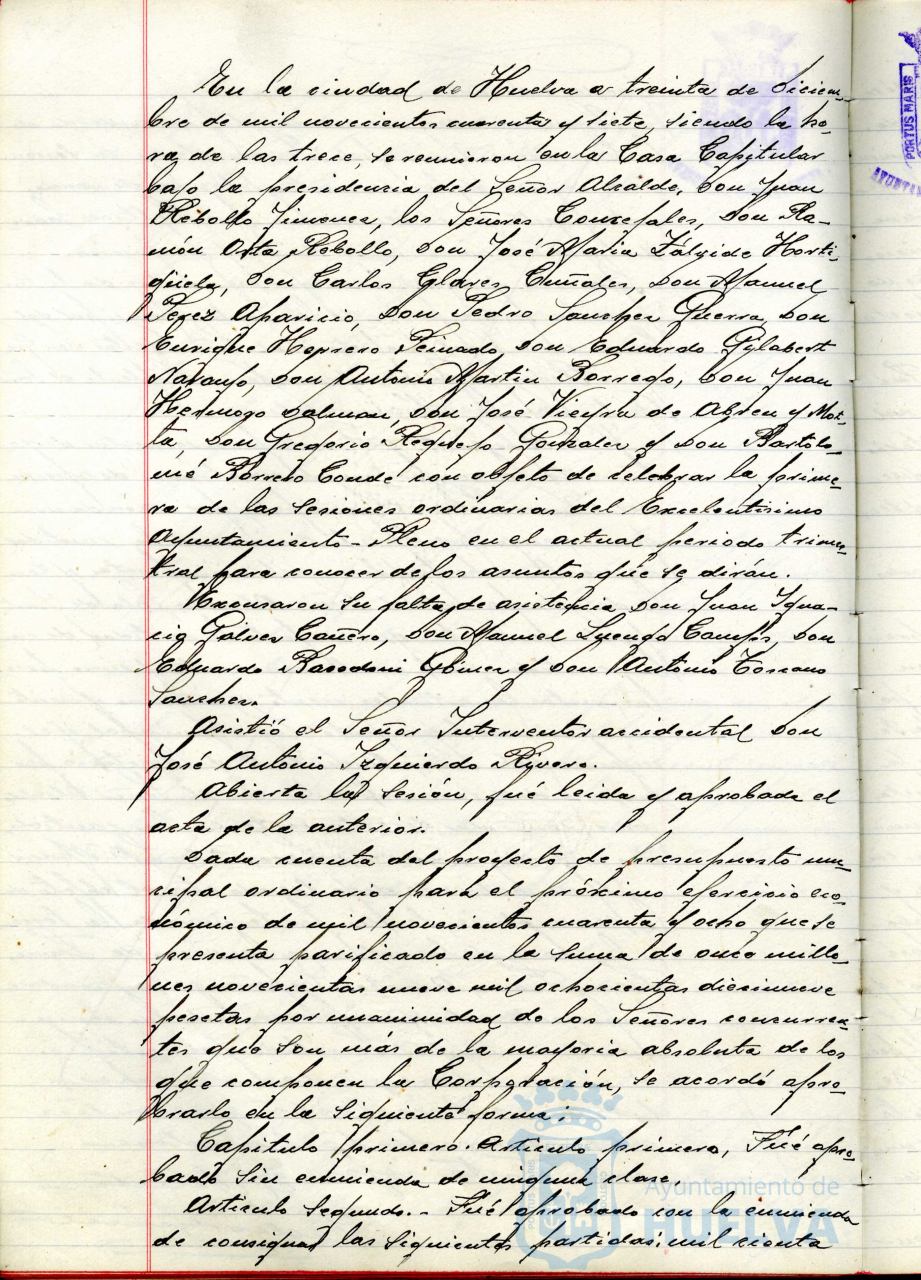 En la ciudad de Huelva a treinta de Diciem-
bre de mil novecientos cuarenta y siete, siendo la ho-
ra de las trece, se reunieron en la Casa Capitular
bajo la presidencia del Señor Alcalde, Don Juan
Rebollo Jimenez, los Señores Concejales, Don Ra-
món Orta Rebollo, Don José Maria Zálvide Horti-
güela, Don Carlos Clares Cuñales, Don Manuel
Perez Aparicio, Don Pedro Sanchez Guerra, Don
Enrique Herrero Peinado, Don Eduardo Gylabert
Naranjo, Don Antonio Martin Borrego, Don Juan
Hermogo Dolman, Don José Vieyra de Abreu y Mot-
ta, Don Gregorio Gonzalez y Don Bartolo-
mé Borrero Conde con objeto de celebrar la prime-
ra de las sesiones ordinarias del Excelentisimo
Ayuntamiento-Pleno en el actual periodo trimes-
tral para conocer de los asuntos que se dirán.
Excusaron su falta de asistencia Don Juan Igna-
cio Galvez Cañero, Don Manuel Luengo Don
Eduardo Gómez y Don Antonio Toscano
Sanchez.
Asistió el Señor Interventor accidental Don
José Antonio Izquierdo Rivero.
Abierta la sesión, fué leida y aprobada el
acta de la anterior.
Dada cuenta del proyecto de presupuesto mu-
cipal ordinario para el próximo ejercicio eco-
nómico de mil novecientos cuarenta y ocho que se
presenta parificado en la suma de once millo-
nes novecientas nueve mil ochocientas diecinueve
pesetas por unanimidad de los Señores concurren-
tes que son más de la mayoria absoluta de los
que componen la Corporación, se acordó apro-
barlo en la siguiente forma:
Capitulo primero. Articulo primero, Fué apro-
bado sin enmienda de ninguna clase.
Articulo segundo.- Fué aprobado con la enmienda
de consignar las siguientes partidas: mil cienta
PORTUS MARIS
AYUNTAM
Ayuntamiento de
HUELVA